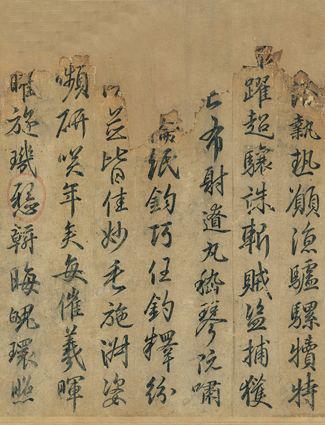 浴執熱願涼驢騾犢特
躍超驤誅斬賊盗捕獲
亡布射遼丸嵇琴阮嘯
倫紙鈞巧任釣釋紛
並皆佳妙毛施淑姿
嚬研咲年矢每催羲暉
曜旋璣懸斡晦魄環照